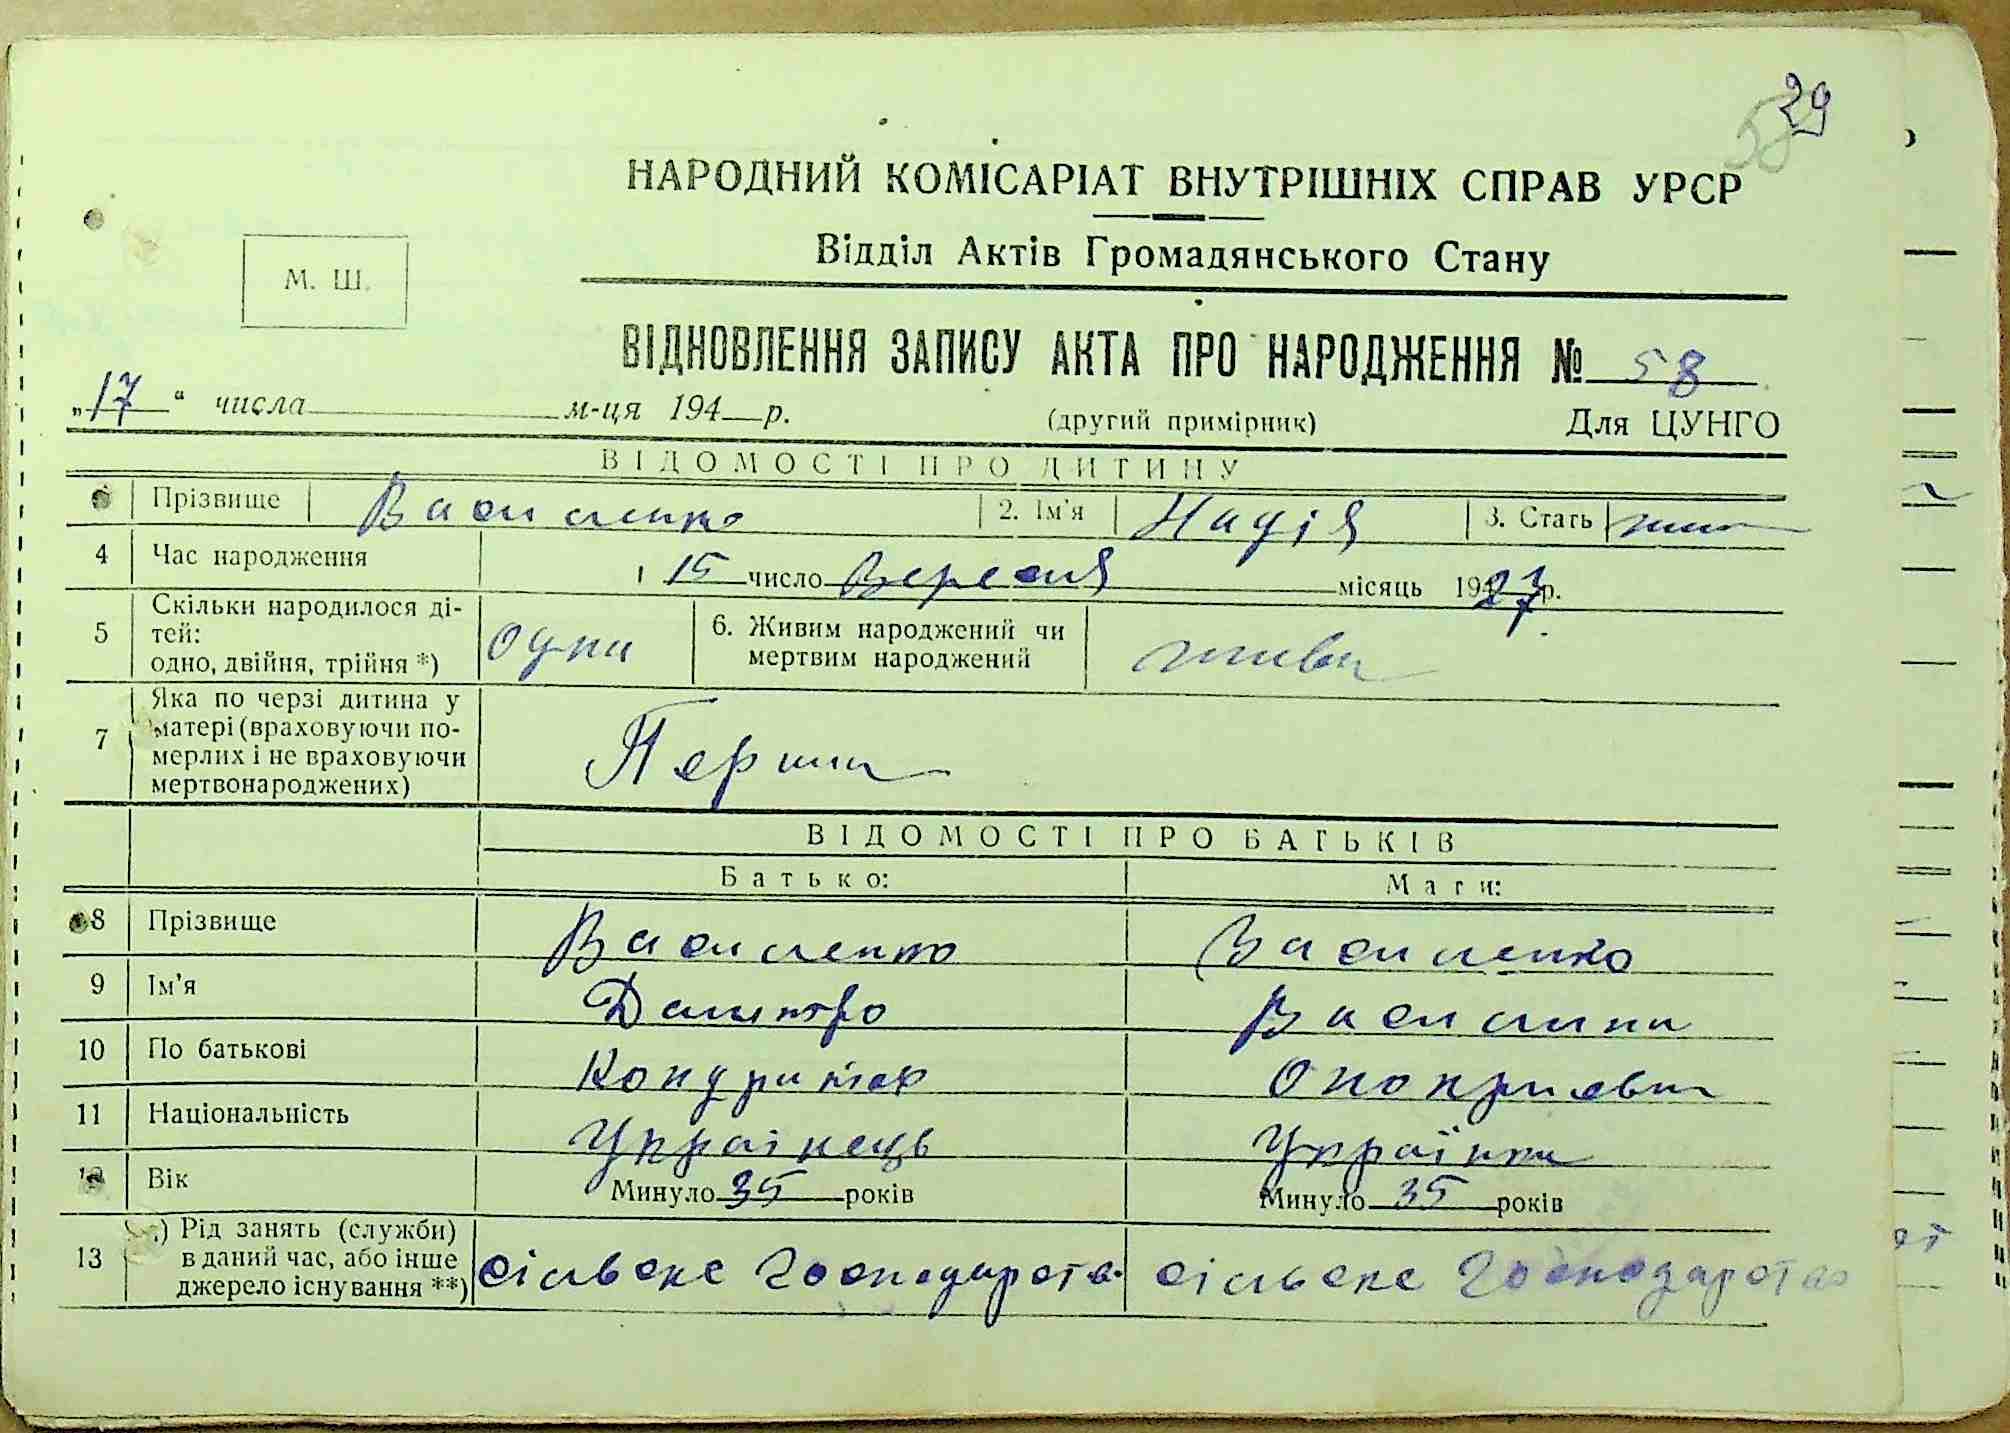 29
58
НАРОДНИЙ КОМІСАРІАТ ВНУТРІШНІХ СПРАВ УРСР
Відділ Актів Громадянського Стану
М. Ш.
ВІДНОВЛЕННЯ ЗАПИСУ АКТА ПРО НАРОДЖЕННЯ № 58
„17“ числа м-ця 194 р. (другий примірник) Для ЦУНГО
ВІДОМОСТІ ПРО ДИТИНУ
Прізвище Василенко 2. Ім'я Надія 3. Стать жін
4 Час народження 15 число Вересня місяць 1927 р.
5 Скільки народилося ді-
тей:
одно, двійня, трійня *) одна 6. Живим народжений чи
мертвим народжений жива
7 Яка по черзі дитина у
матері (враховуючи по-
мерлих і не враховуючи
мертвонароджених) Перша
ВІДОМОСТІ ПРО БАТЬКІВ
Батько: Мати:
8 Прізвище Василенко Василенко
9 Ім'я Дмитро Василина
10 По батькові Кондратов Оноприевна
11 Національність Українець Українка
12 Вік Минуло 35 років Минуло 35 років
13 Рід занять (служби)
в даний час, або інше
джерело існування **) сільске Господарство сільске Господарство